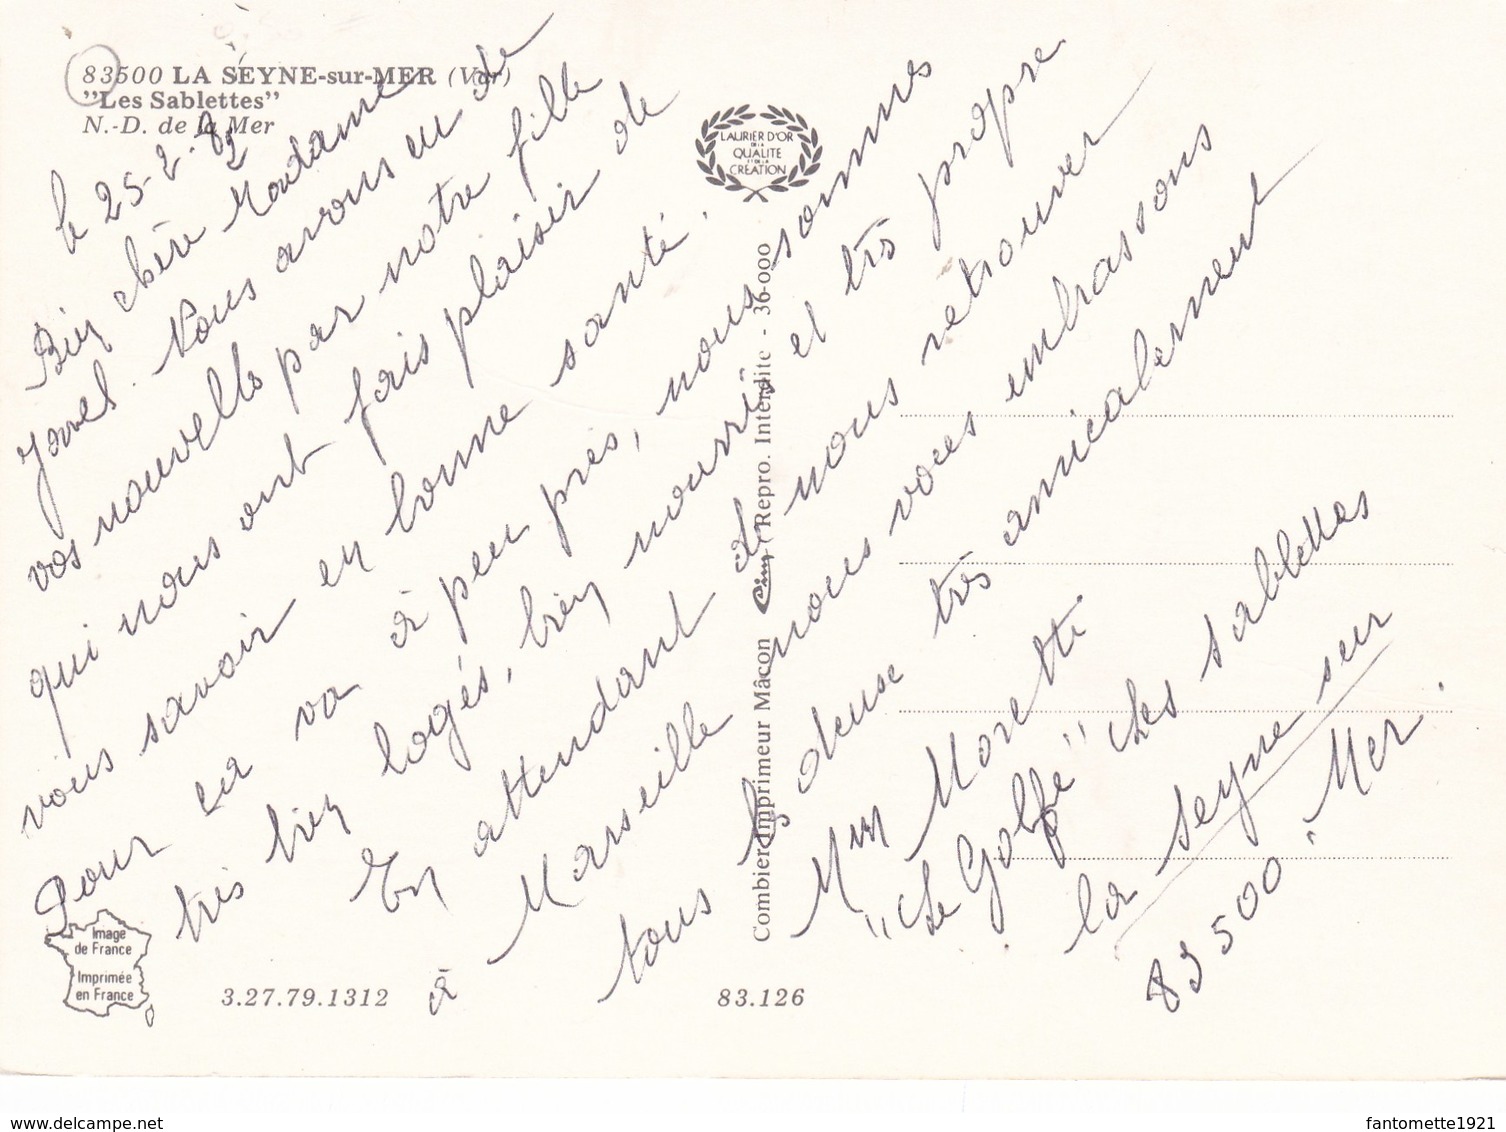 83500 LA SEYNE-sur-MER (Var)
"Les Sablettes"
N.-D. de la Mer
le 25-2-82
Bien chère Madame
Javel. Nous avons eu de
vos nouvelles par notre fille
qui nous ont fais plaisir de
vous savoir en bonne santé.
Pour ça va à peu près, nous sommes
très bien logés, bien nourris et très propre
En attendant de nous retrouver
à Marseille nous vous embrassons
tous les deuse très amicalement
Mme Moretti
"Le Golfe" Les Sablettes
la Seyne sur
83500 - Mer.
LAURIER D'OR
DE LA
QUALITE
ET DE LA
CREATION
Combier Imprimeur Mâcon Cim Repro. Interdite - 36-000
Image
de France
Imprimée
en France
3.27.79.1312
83.126
delcampe.net
fantomette1921